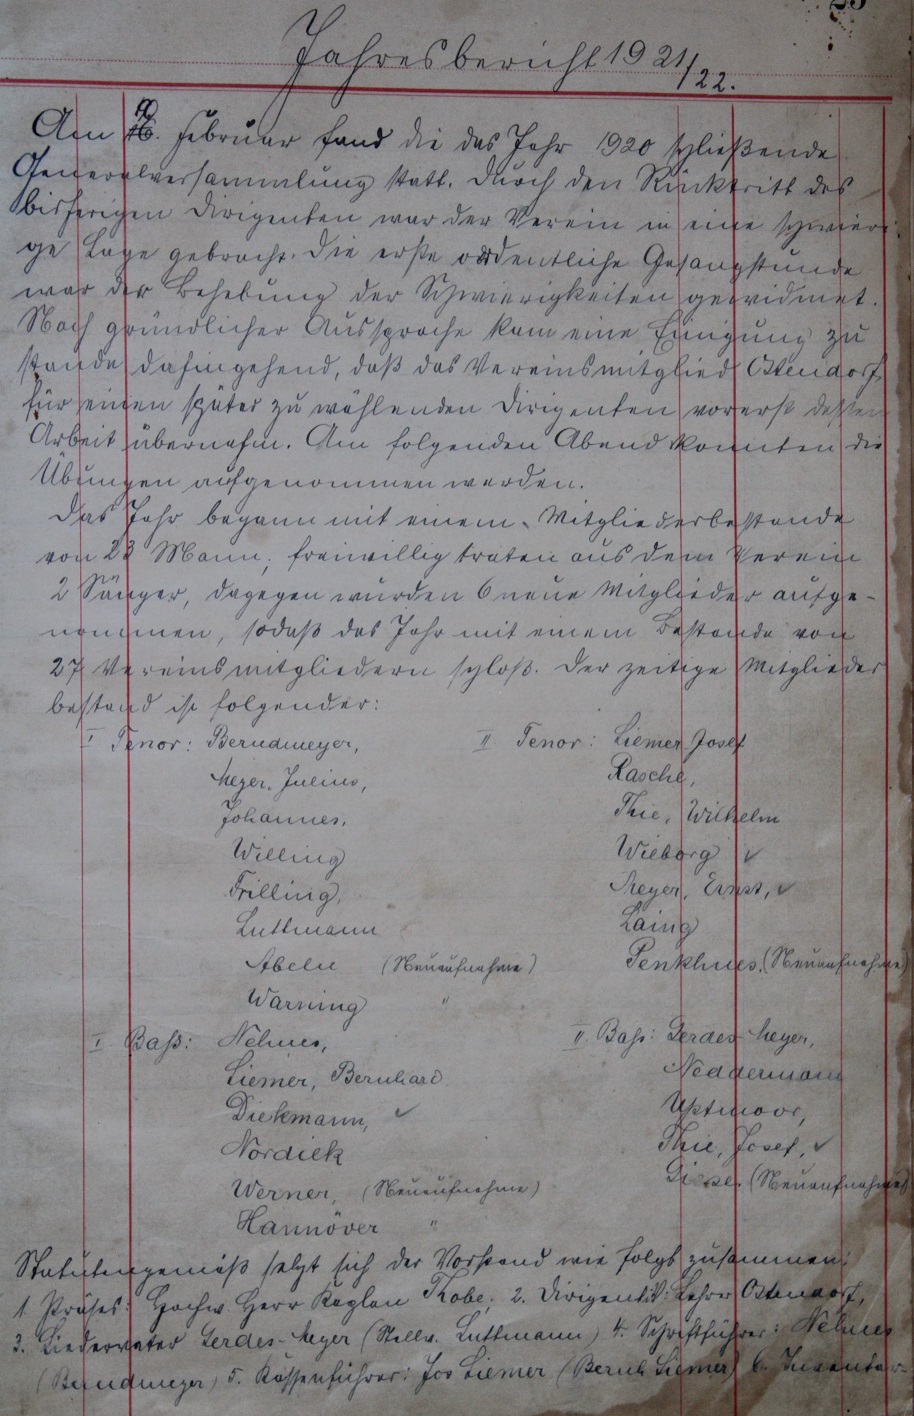 25
Jahresbericht 1921/22.
Am 10. Februar fand die das Jahr 1920 schließende
Generalversammlung statt. Durch den Rücktritt des
bisherigen Dirigenten war der Verein in eine schwieri-
ge Lage gebracht. Die erste ordentliche Gesangstunde
war der Behebung der Schwierigkeiten gewidmet.
Nach gründlicher Aussprache kam eine Einigung zu
stande dahingehend, daß das Vereinsmitglied Ostendorf
für einen später zu wählenden Dirigenten vorerst dessen
Arbeit übernahm. Am folgenden Abend konnten die
Übungen aufgenommen werden.
Das Jahr begann mit einem Mitgliederbestande
von 23 Mann; freiwillig traten aus dem Verein
2 Sänger, dagegen wurden 6 neue Mitglieder aufge-
nommen, sodaß das Jahr mit einem Bestande von
27 Vereinsmitgliedern schloß. Der zeitige Mitglieder
bestand ist folgender:
I Tenor: Berndmeyer, II Tenor: Liemer Josef
Meyer, Julius, Rasche,
Johannes, Thie, Wilhelm
Willing Wieborg ✓
Frilling, Meyer, Ernst, ✓
Luttmann Laing
Abeln (Neuaufnahme) Penkhues. (Neuaufnahme)
Warning "
I Baß: Nehues, II Baß: Gerdes-Meyer,
Liemer, Bernhard Neddermann
Diekmann, ✓ Uptmoor,
Nordiek Thie, Josef, ✓
Werner, (Neuaufnahme) Giese. (Neuaufnahme)
Hannöver "
Statutengemäß setzt sich der Vorstand wie folgt zusammen:
1. Präses: Hochw. Herr Kaplan Kobe; 2. Dirigent: Lehrer Ostendorf,
3. Liedervater Gerdes-Meyer (Stellv. Luttmann) 4. Schriftführer: Nehues
(Berndmeyer) 5. Kassenführer: Jos Liemer (Bernh Liemer) 6. Inventar-